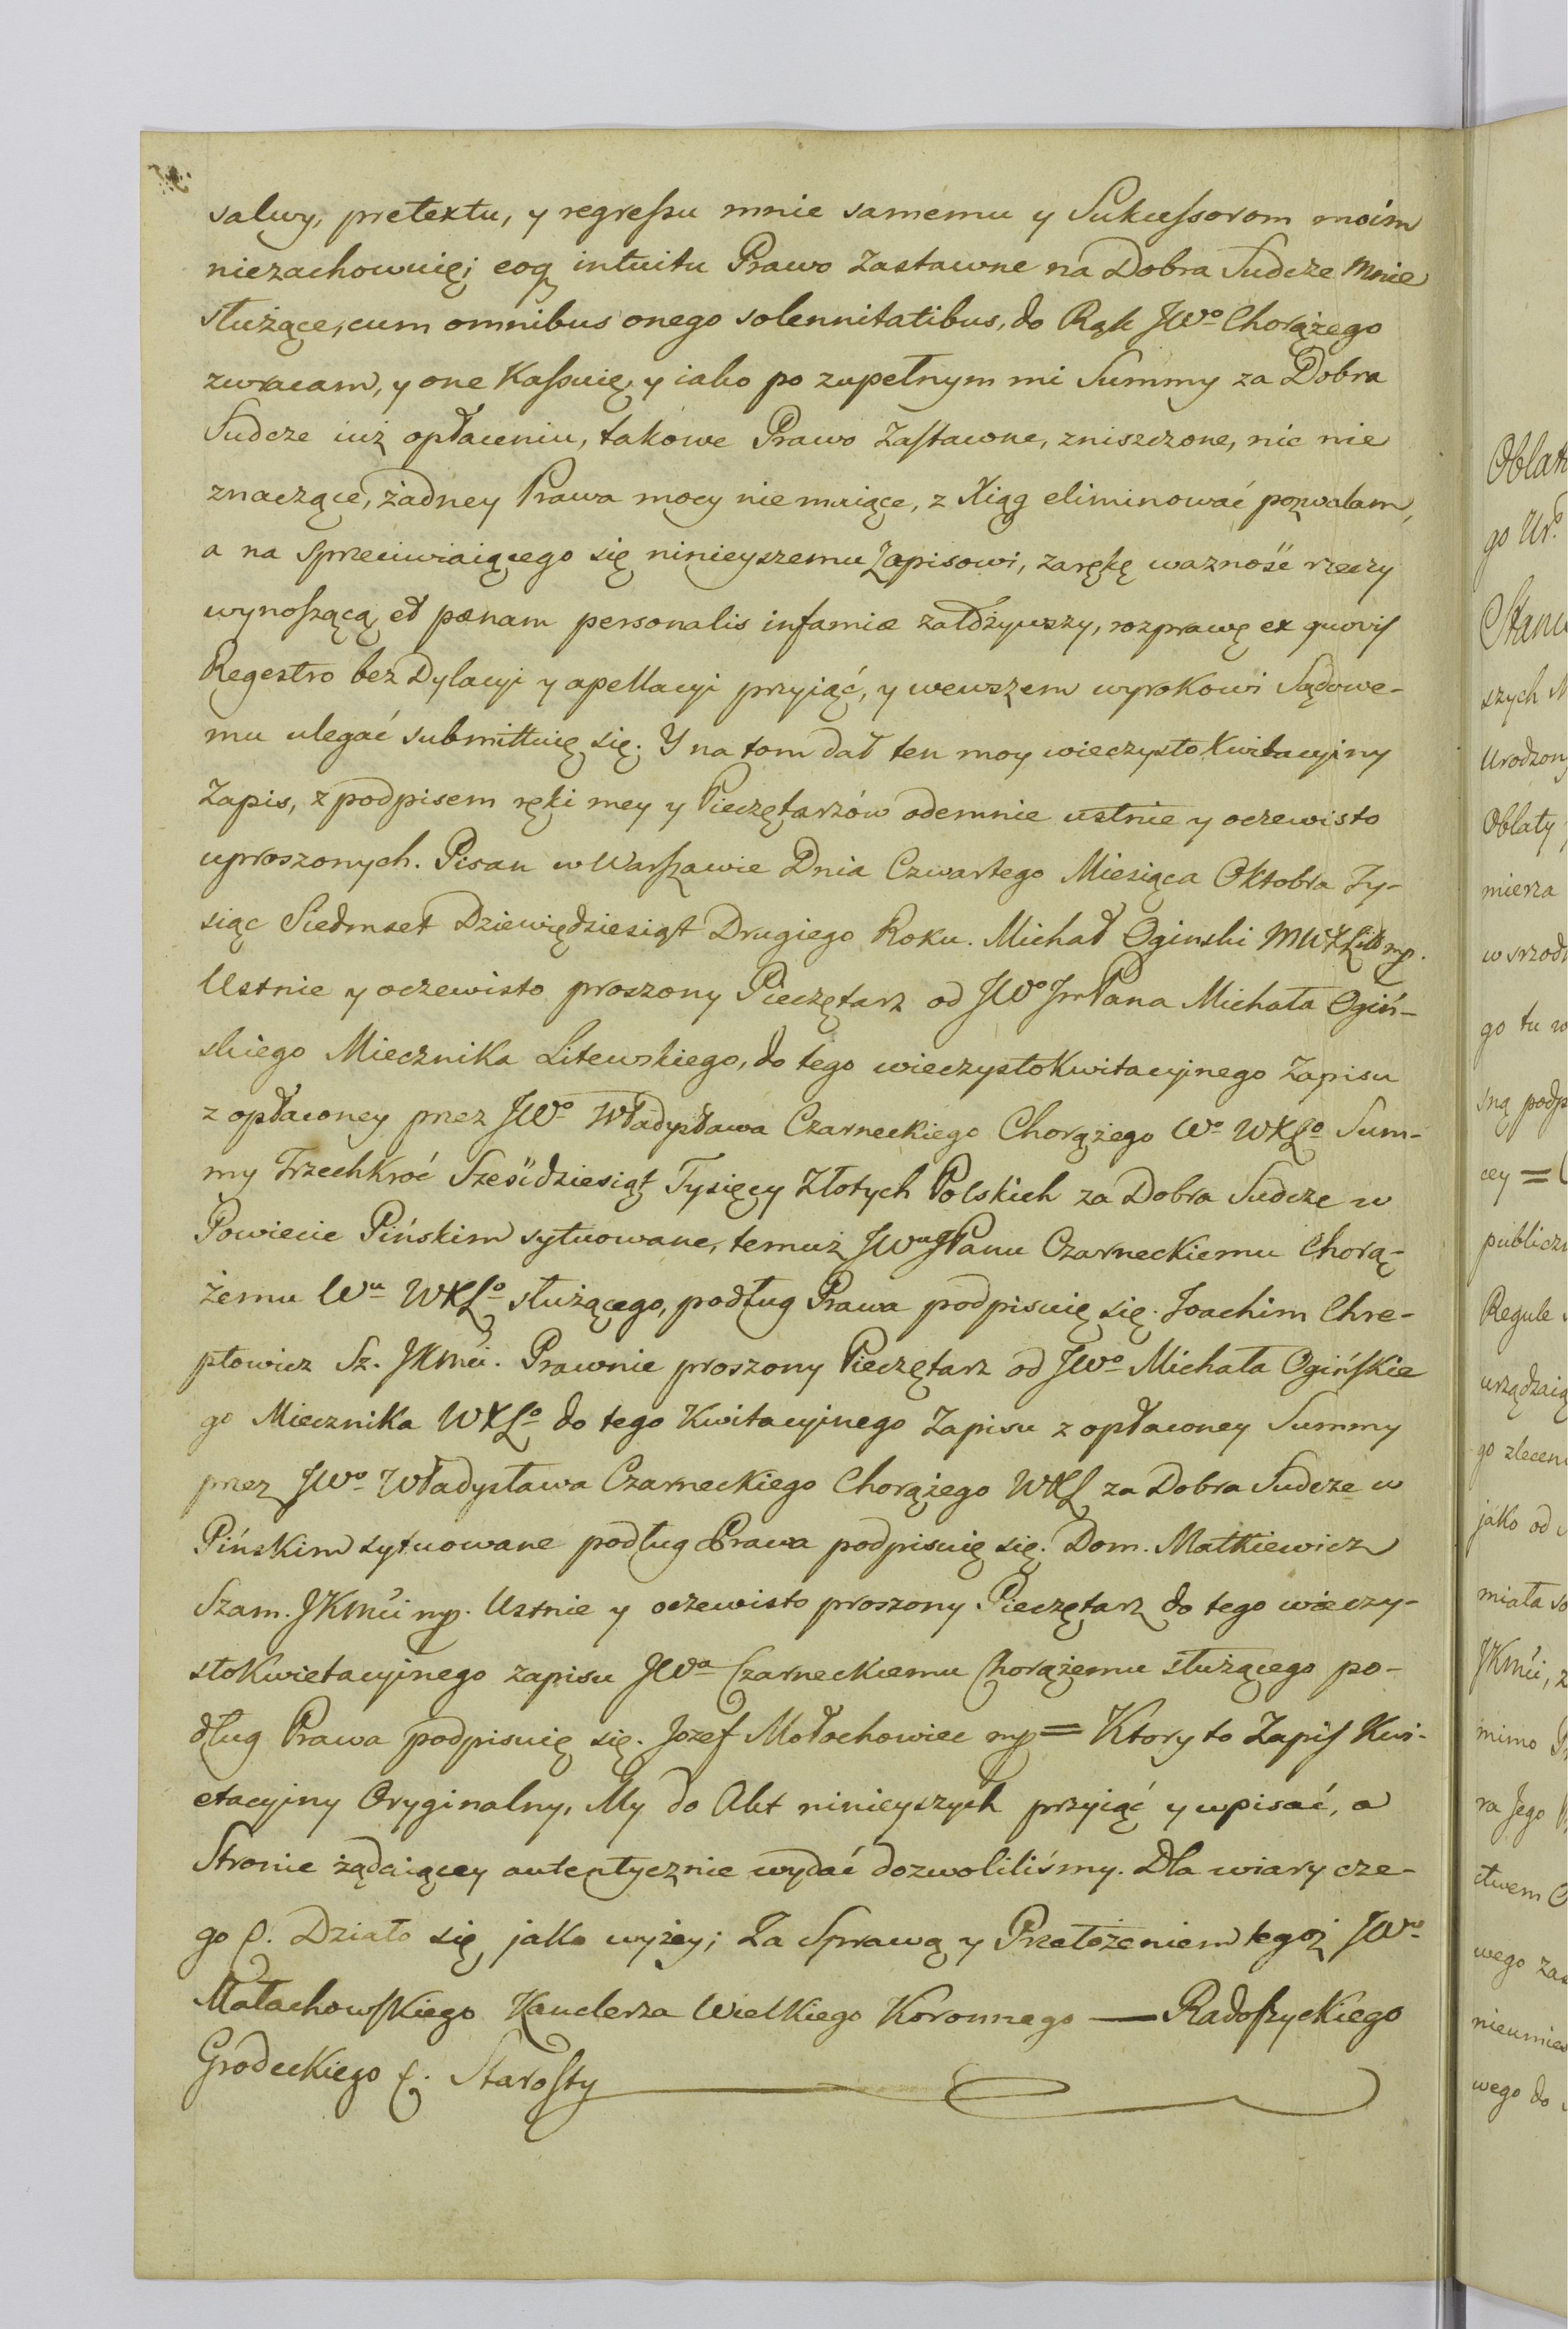 salwy, pretextu, y regressu mnie samemu y Sukcessorom moim
niezachowuię; eoq intuitu Prawo Zastawne na Dobra Sudcze mnie
służące, cum omnibus onego solennitatibus, do Rąk JWo Chorążego
zwracam, y one Kassuię, y iako po zupełnym mi Summy za Dobra
Sudcze iuż opłaceniu, takowe Prawo Zastawne, zniszczone, nic nie
znaczące, żadney Prawa mocy nie maiące, z Xiąg eliminować pozwalam,
a na sprzeciwiaiącego się ninieyszemu Zapisowi, zarękę wazność rzeczy
wynoszącą et pœnam personalis infamiæ założywszy, rozprawę ex quovis
Regestro bez Dylacyi y apellacyi przyiąć, y wewszem wyrokowi Sądowe-
mu ulegać submittuię się. Y na tom dał ten moy wieczysto Kwitacyjny
Zapis, z podpisem ręki mey y Pieczętarzów odemnie ustnie y oczewisto
uproszonych. Pisan w Warszawie Dnia Czwartego Miesiąca Oktobra Ty-
siąc Siedmset Dziewiędziesiąt Drugiego Roku. Michał Oginski MWXLitt mp.
Ustnie y oczewisto proszony Pieczętarz od JWo JmPana Michała Ogiń-
skiego Miecznika Litewskiego, do tego wieczystokwitacyjnego Zapisu
z opłaconey przez JWo Władysława Czarneckiego Chorążego Wo WXLo Sum-
my Trzechkroć Sześćdziesiąt Tysięcy Złotych Polskich za Dobra Sudcze w
Powiecie Pińskim sytuowane, temuż JWu JPanu Czarneckiemu Chorą-
żemu Wu WXLo służącego, podług Prawa podpisuię się. Joachim Chre-
ptowicz Sz. JKMci. Prawnie proszony Pieczętarz od JWo Michała Ogińskie
go Miecznika WXLo do tego Kwitacyjnego Zapisu z opłaconey Summy
przez JWo Władysława Czarneckiego Chorążego WXL za Dobra Sudcze w
Pińskim sytuowane podług Prawa podpisuię się. Dom. Matkiewicz
Szam. JKMci mp. Ustnie y oczewisto proszony Pieczętarz do tego wieczy-
stokwietacyjnego zapisu JWu Czarneckiemu Chorążemu służącego po-
dług Prawa podpisuię się. Jozef Mołochowiec mp = Ktory to Zapis Kwi-
etacyjny Oryginalny, My do Akt ninieyszych przyiąć y wpisać, a
Stronie żądaiącey autentycznie wydać dozwoliliśmy. Dla wiary cze-
go &. Działo się jako wyżey; Za Sprawą y Przełożeniem tegoż JWo
Małachowskiego Kanclerza Wielkiego Koronnego — Radoszyckiego
Grodeckiego &. Starosty
go Uro
szych
Urodzon
Oblaty
mierza
go tu
podp
cey =
publiczn
Regule
urządzaią
go zlecen
jako od
miała
JKMci,
mimo
ra Jego
ctwem
wego
wego do